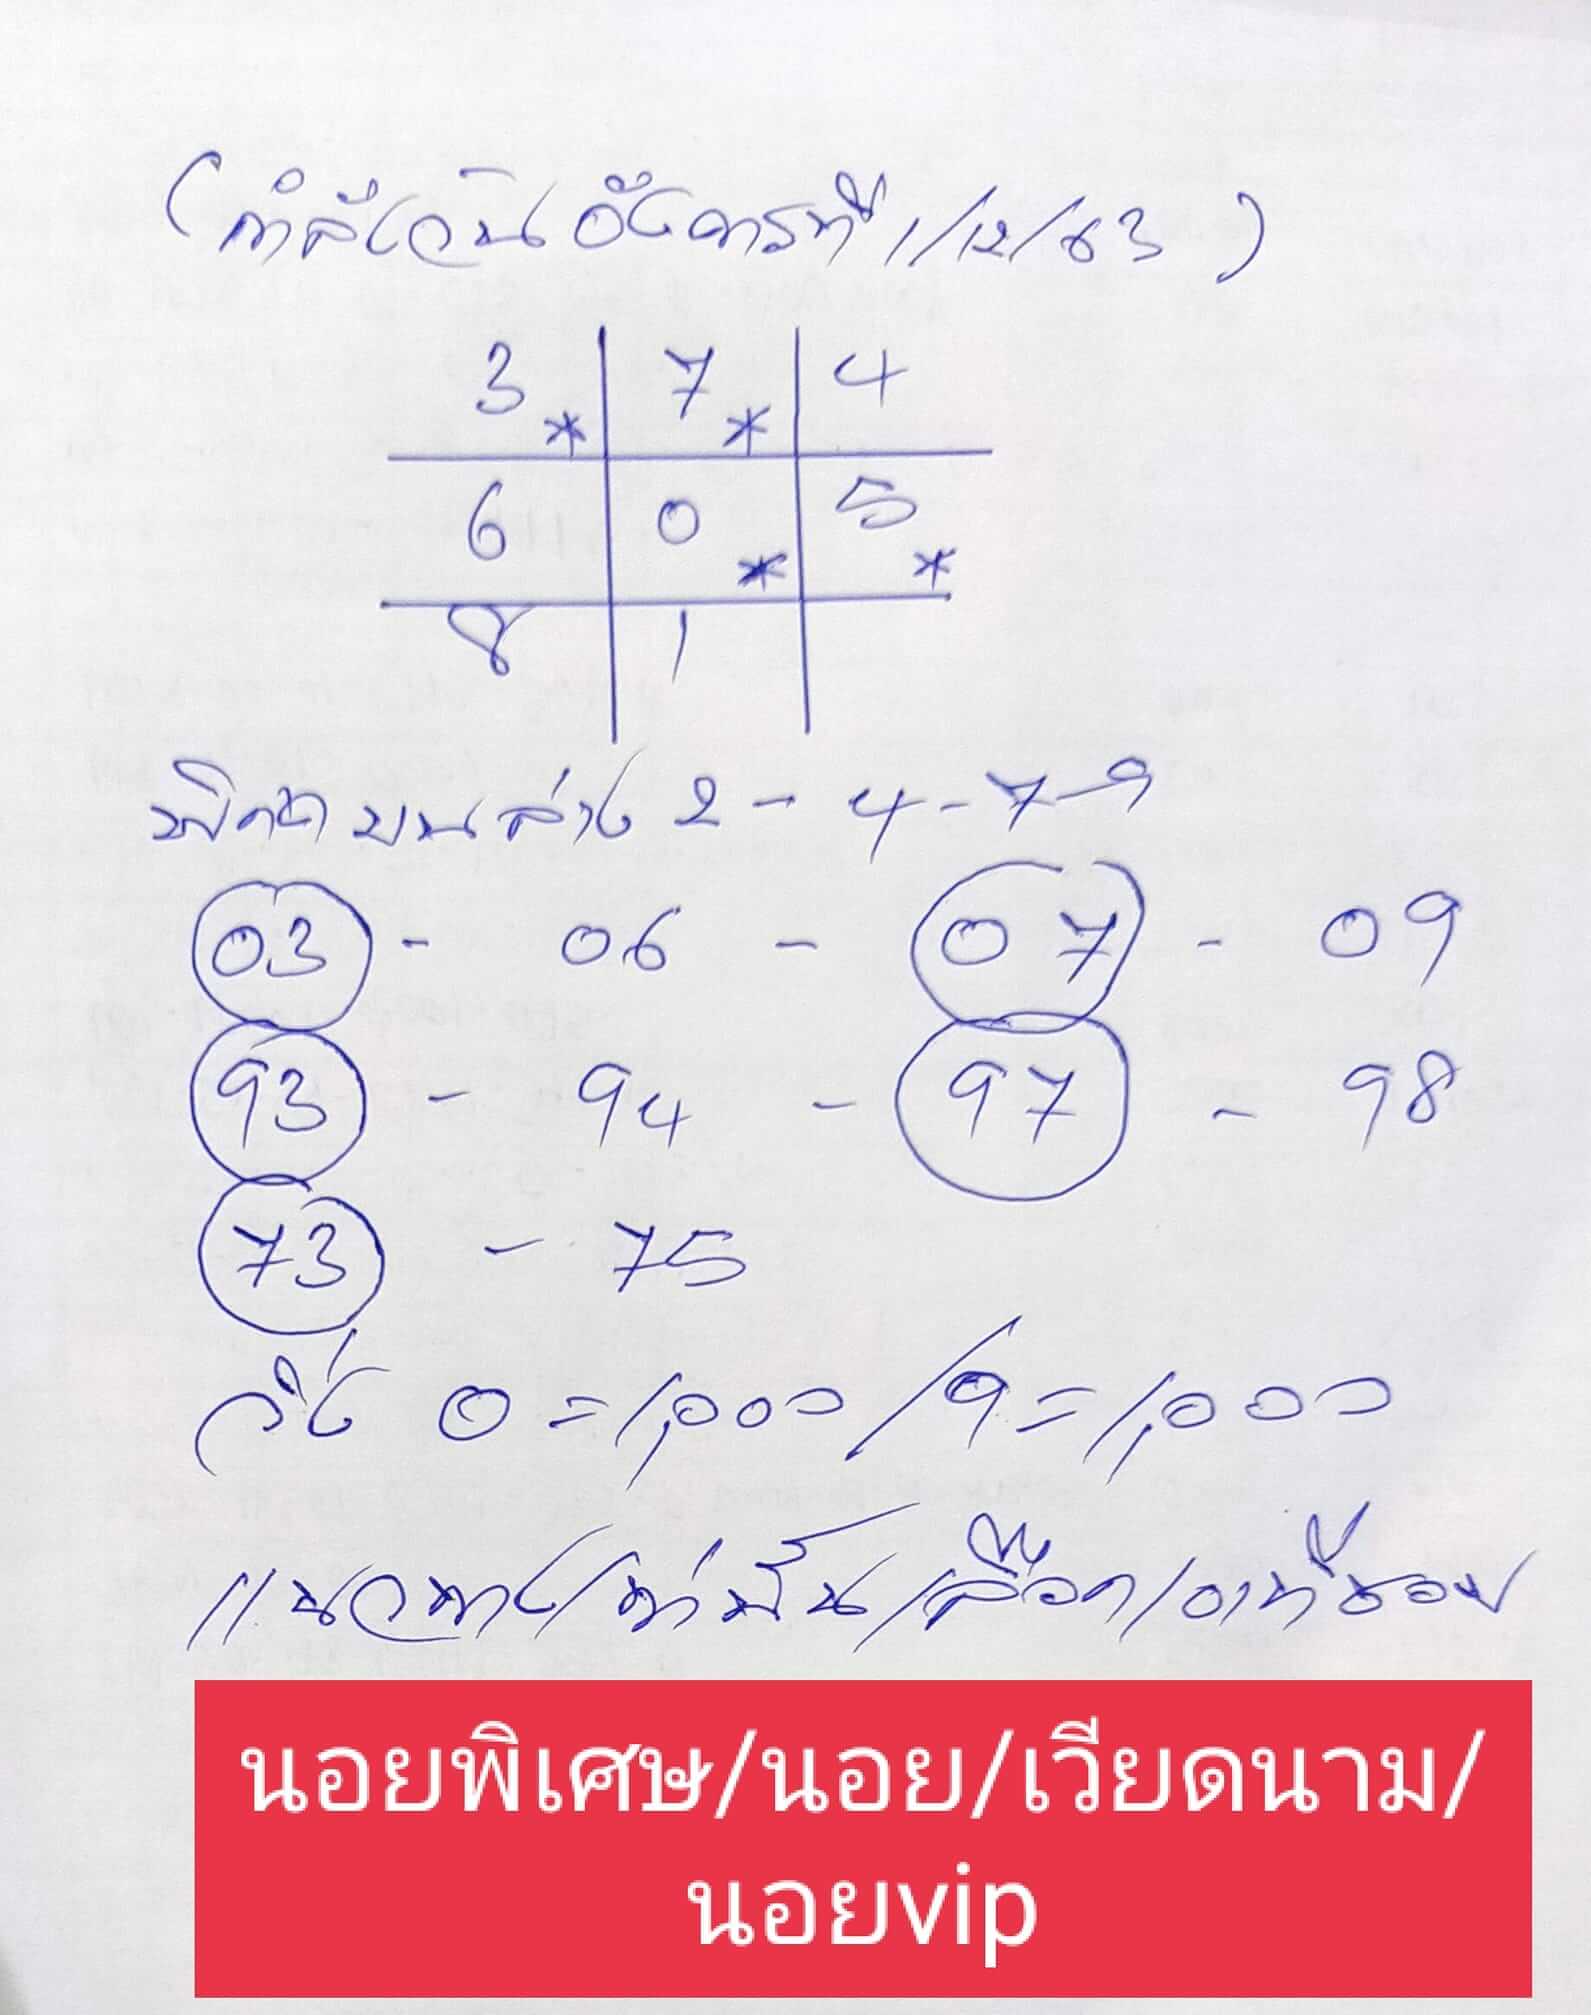 (กำลังวันอังคารที่ 1/12/63)
3* 7* 4
6 0* 5*
8 1
พิกัด บน ล่าง 2 - 4 - 7 - 9
03 - 06 - 07 - 09
93 - 94 - 97 - 98
73 - 75
วิ่ง 0 = 1,000 / 9 = 1,000
แนวทางเท่านั้นเลือกเอาที่ชอบ
นอยพิเศษ/นอย/เวียดนาม/
นอยvip